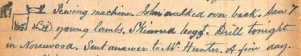 Sewing machine. John walked over back. Saw 7
young lambs. Skinned hogg. Drill tonight
in Norwood. Sent answer to Mr. Hunter. A fine day.